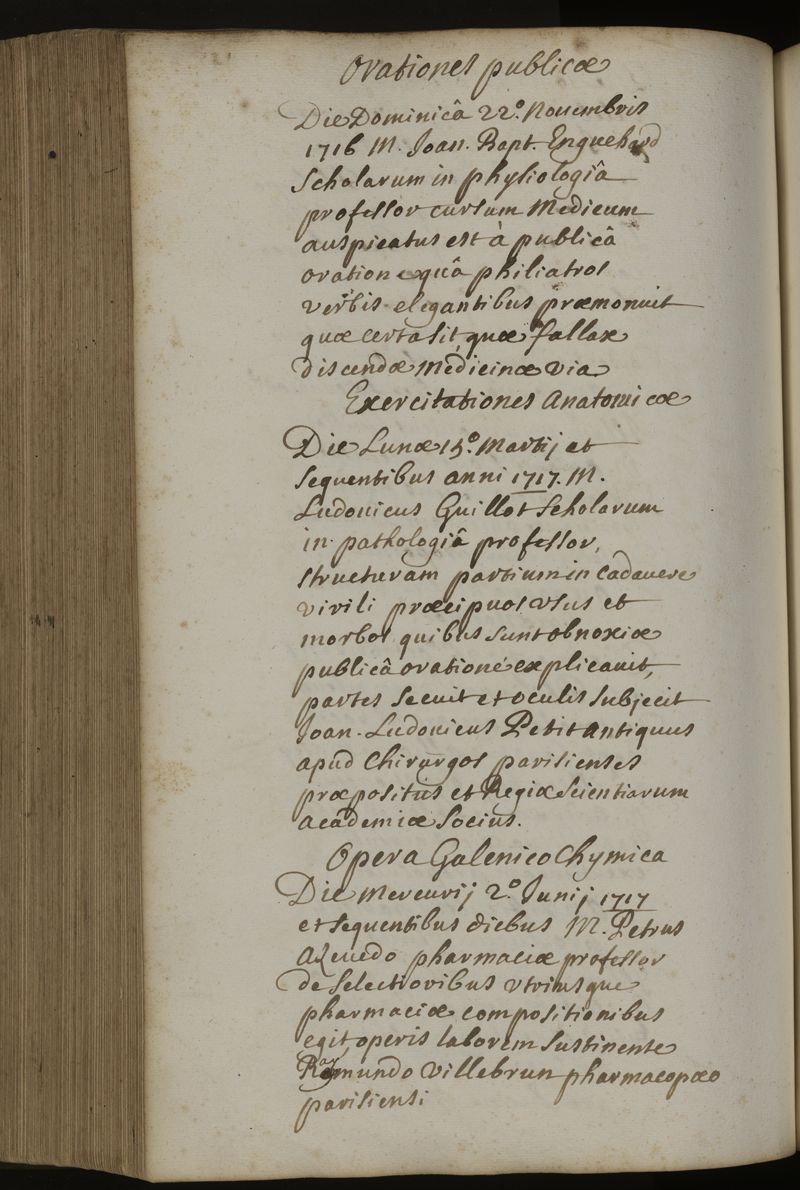 Orationes publicæ
Die Dominicâ 22.º Nouembris
1716 M. Joan. Bapt. Enguehard
Scholarum in physiologiâ
professor cursum Medicum
auspicatus est à publicâ
oratione quâ philiatros
verbis elegantibus præmonuit
quæ certa sit, quæ fallax
discendæ Medicinæ via
Exercitationes Anatomicæ
Die Lunæ 15.º Martij et
sequentibus anni 1717. M.
Ludouicus Guillot Scholarum
in pathologiâ professor,
structuram partium in Cadauere
virili præcipuos vsus et
morbos quibus sunt obnoxiæ
publicâ oratione explicauit,
partes secuit et oculis subjecit
Joan. Ludouicus Petit Antiquus
apud Chirurgos parisienses
præpositus et Regiæ Scientiarum
academiæ Socius.
Opera Galenico Chymica
Die Mercurij 2.º Junij 1717
et sequentibus diebus M. Petrus
Azeuedo pharmaciæ professor
de Selectioribus vtriusque
pharmaciæ compositionibus
egit, operis laborem sustinente
Raymundo Villebrun pharmacopæo
parisiensi